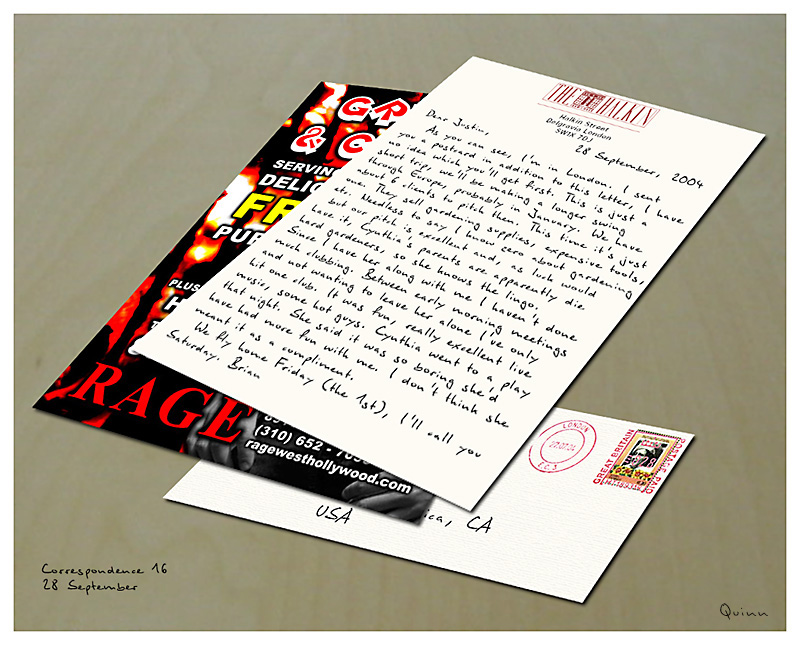 THE HALKIN
Halkin Street
Belgravia London
SW1X 7DJ
28 September, 2004
Dear Justin,
As you can see, I'm in London. I sent
you a postcard in addition to this letter, I have
no idea which you'll get first. This is just a
short trip, we'll be making a longer swing
through Europe, probably in January. We have
about 6 clients to pitch then. This time it's just
one. They sell gardening supplies, expensive tools,
etc. Needless to say I know zero about gardening
but our pitch is excellent and, as luck would
have it, Cynthia's parents are apparently die
hard gardeners, so she knows the lingo.
Since I have her along with me I haven't done
much clubbing. Between early morning meetings
and not wanting to leave her alone I've only
hit one club. It was fun, really excellent live
music, some hot guys. Cynthia went to a play
that night. She said it was so boring she'd
have had more fun with me. I don't think she
meant it as a compliment.
We fly home Friday (the 1st), I'll call you
Saturday. Brian
& C
SERVIN
DELIC
FR
PUR
PLUS
RAGE
(310) 652 - 7055
ragewesthollywood.com
LONDON
E.C.3
GREAT BRITAIN
POSTAGE PAID
USA
ica, CA
Correspondence 16
28 September
Quinn